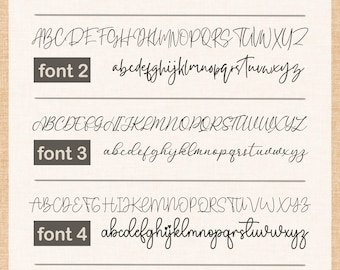 ABCDEFGHIJKLMNOPQRSTUVWXYZ
font 2 abcdefghijklmnopqrstuvwxyz
ABCDEFGHIJKLMNOPQRSTUVWXYZ
font 3 abcdefghijklmnopqrstuvwxyz
ABCDEFGHIJKLMNOPQRSTUVWXYZ
font 4 abcdefghijklmnopqrstuvwxyz